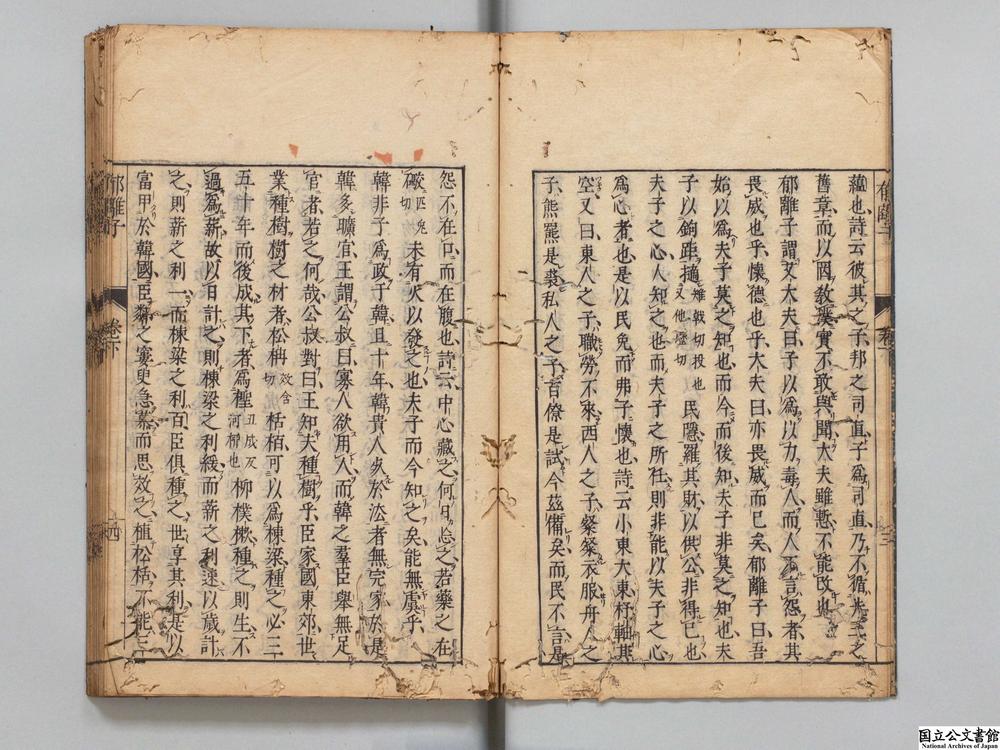 蘊也詩云彼其之子邦之司直子爲司直乃不循先王之
舊章而以罔敎擾實不敢與聞大夫雖慙不能改也
郁離子謂艾大夫曰子以爲以力毒人而人不言怨者其
畏威也乎懷德也乎大夫曰亦畏威而已矣郁離子曰吾
始以爲夫子莫之知也而今而後知夫子非莫之知也夫
子以鉤距擿雉戟切投也又他歷切民隱羅其財以供公非得已也
夫子之心人知之也而夫子之所任則非能以夫子之心
爲心者也是以民免而弗子懷也詩云小東大東杼軸其
空又曰東人之子職勞不來西人之子粲粲衣服舟人之
子熊羆是裘私人之子百僚是試今茲備矣而民不言是
郁離子
三
怨不在口而在腹也詩云中心藏之何日忘之若藥之在
礮匹皃切未有火以發之也夫子而今知之矣能無虞乎
韓非子爲政于韓且十年韓貴人死於法者無完家於是
韓多曠官王謂公叔曰寡人欲用人而韓之羣臣舉無足
官者若之何哉公叔對曰王知夫種樹乎臣家國東郊世
業種樹樹之材者松柟切栝栢可以爲棟梁種之必三
五十年而後成其下者爲檉丑成反河柳也柳樸樕種之則生不
過爲薪故以日計之則棟梁之利緩而薪之利速以歲計
之則薪之利一而棟梁之利百臣俱種之世享其利是以
富甲於韓國臣鄰之寠叟急慕而思效之植松栝不能三
郁離子
卷下
四
国立公文書館
National Archives of Japan